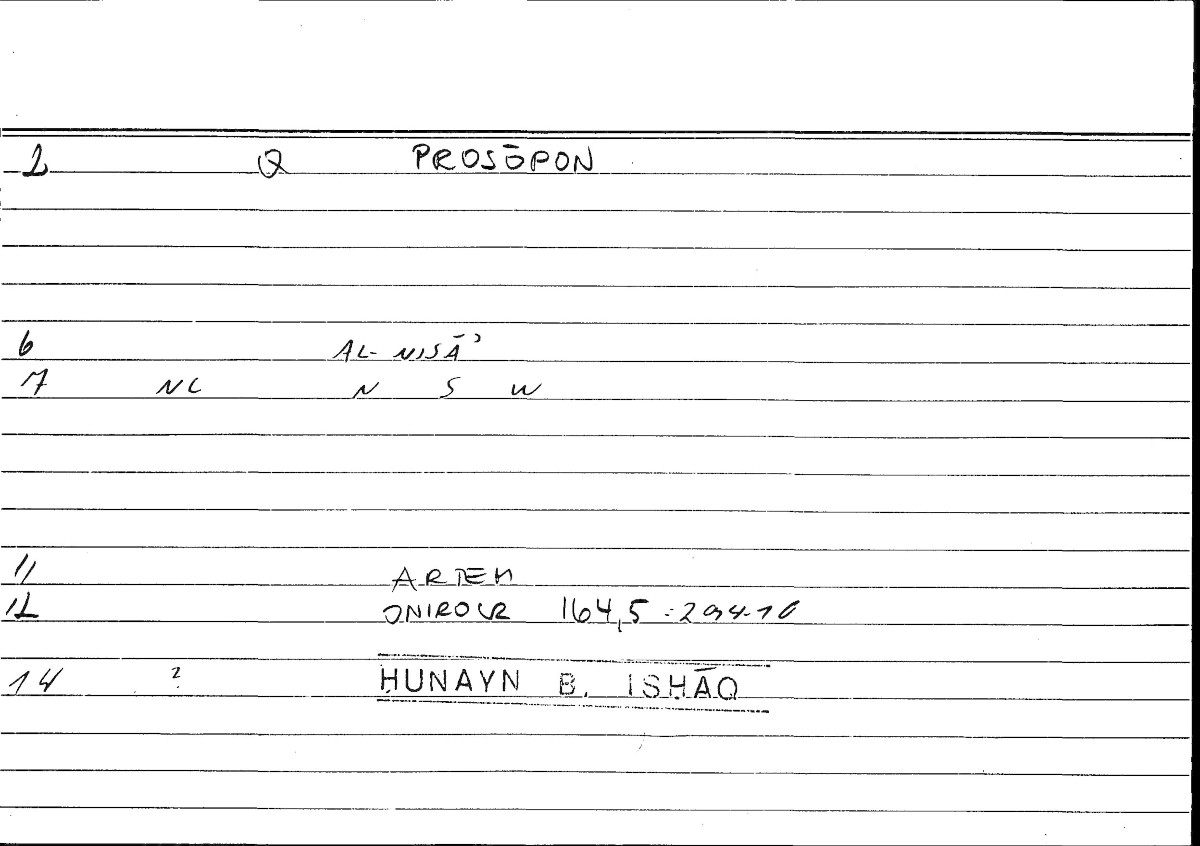 2 Q PROSŌPON
6 AL-NISĀʾ
7 NC N S W
11 ARTEM
12 ONIROCR 164,5 = 294.10
14 ? ḤUNAYN B. ISḤĀQ